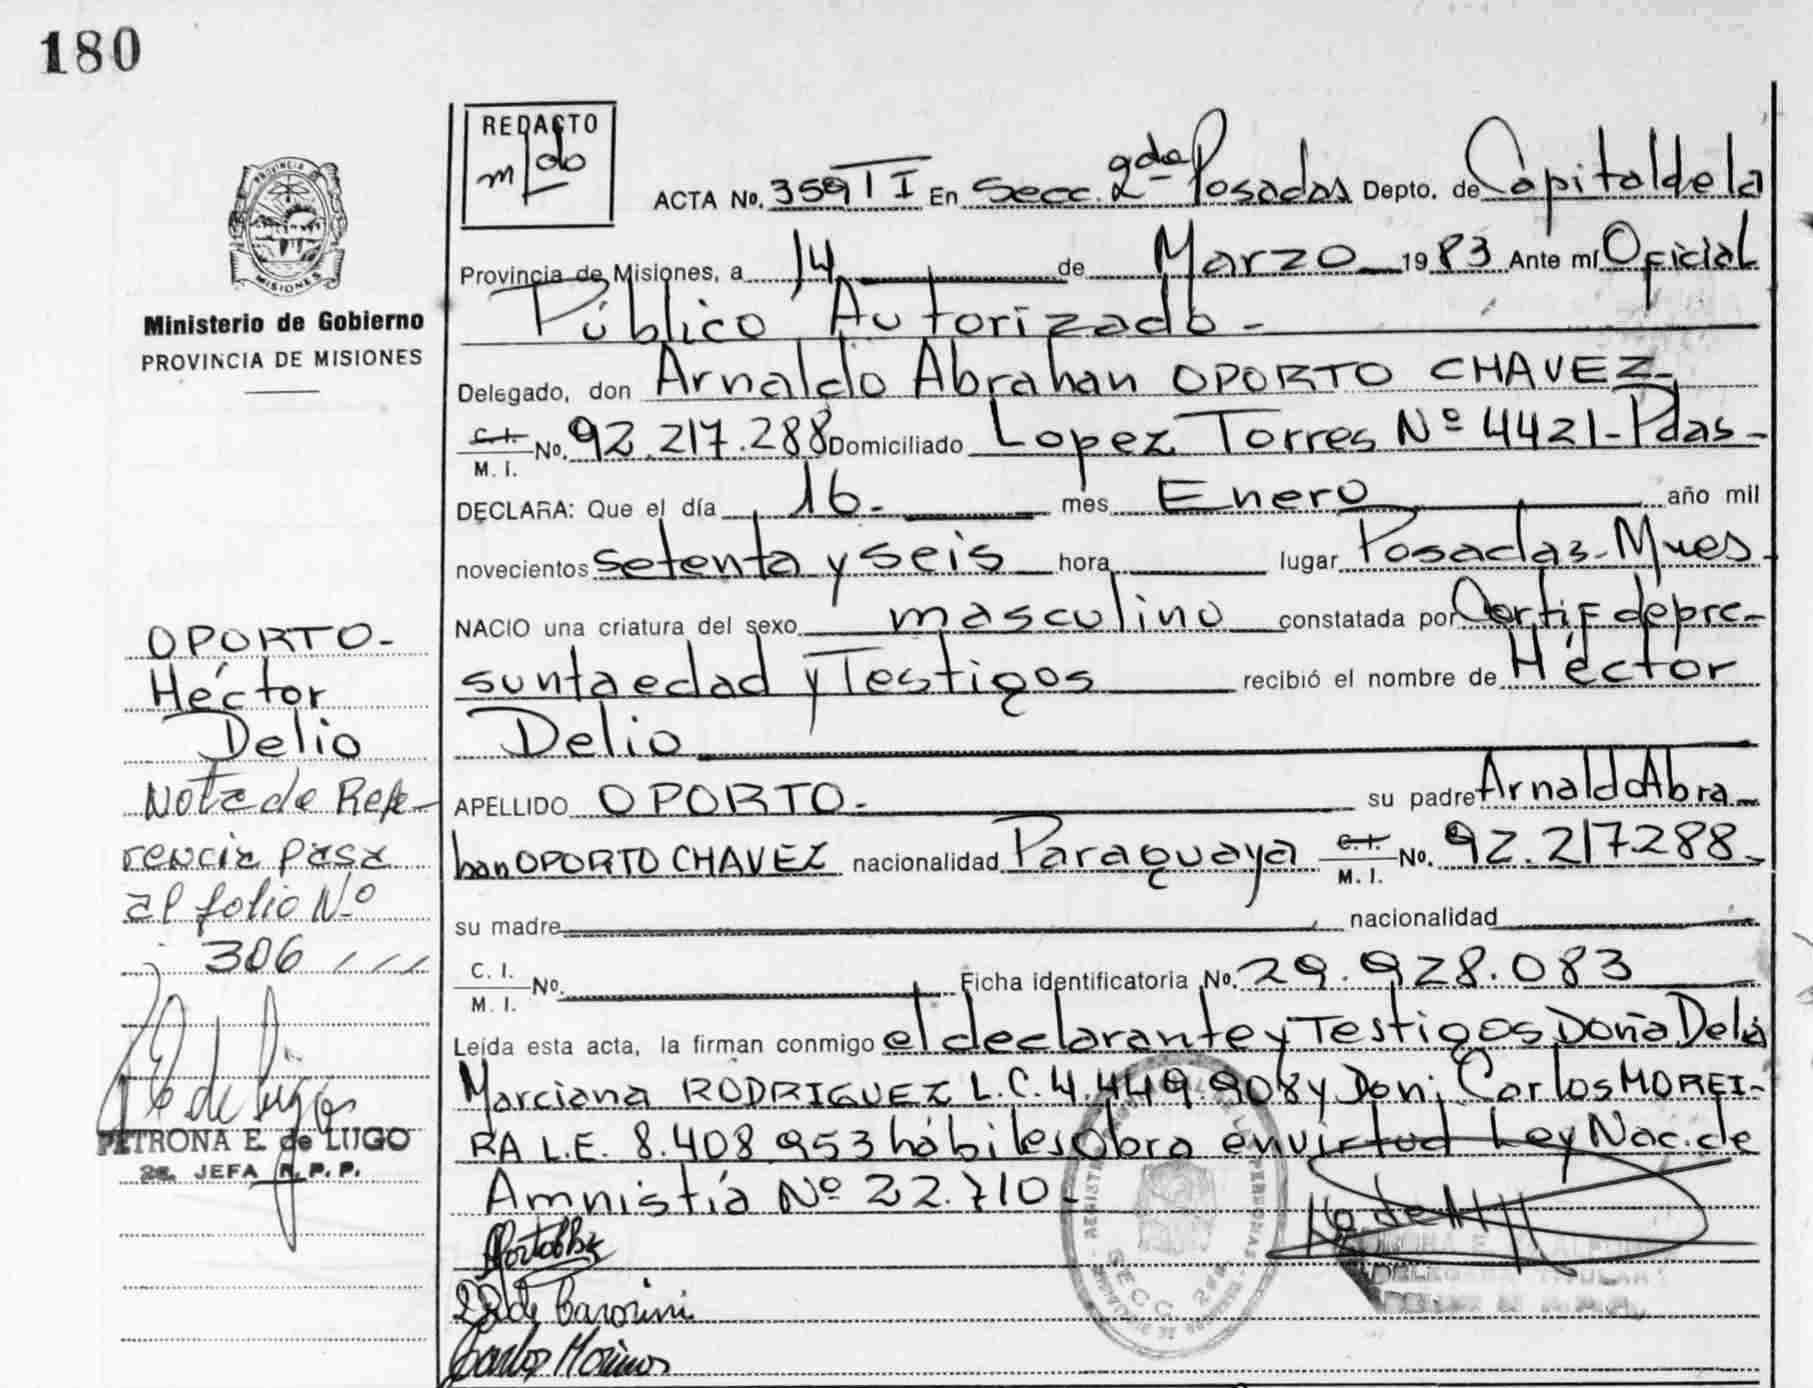 180
REDACTO
PROVINCIA
MISIONES
Ministerio de Gobierno
PROVINCIA DE MISIONES
ACTA No. 359 T I En Secc. 2da Posadas Depto. de Capital de la
Provincia de Misiones, a 14 de Marzo 1983 Ante mí Oficial
Público Autorizado -
Delegado, don Arnaldo Abrahan OPORTO CHAVEZ-
C.I. / M.I. No. 92.217.288 Domiciliado Lopez Torres Nº 4421-Pdas-
DECLARA: Que el día 16- mes Enero año mil
novecientos setenta y seis hora lugar Posadas-Mnes-
NACIO una criatura del sexo masculino constatada por Certif de pre-
sunta edad y Testigos recibió el nombre de Héctor
Delio
APELLIDO OPORTO- su padre Arnaldo Abra
han OPORTO CHAVEZ nacionalidad Paraguaya C.I. / M.I. No. 92.217.288-
su madre nacionalidad
C.I. / M.I. No. Ficha identificatoria No. 29.928.083
Leída esta acta, la firman conmigo el declarante y Testigos Doña Delia
Marciana RODRIGUEZ L.C. 4.449.908 y Don; Carlos MOREI-
RA L.E. 8.408.953 hábiles Obra en virtud Ley Nac. de
Amnistía Nº 22.710-
OPORTO-
Héctor
Delio
Nota de Refe-
rencia pasa
al folio Nº
306
PETRONA E. de LUGO
2a. JEFA R.P.P.
DELEGADA TITULAR